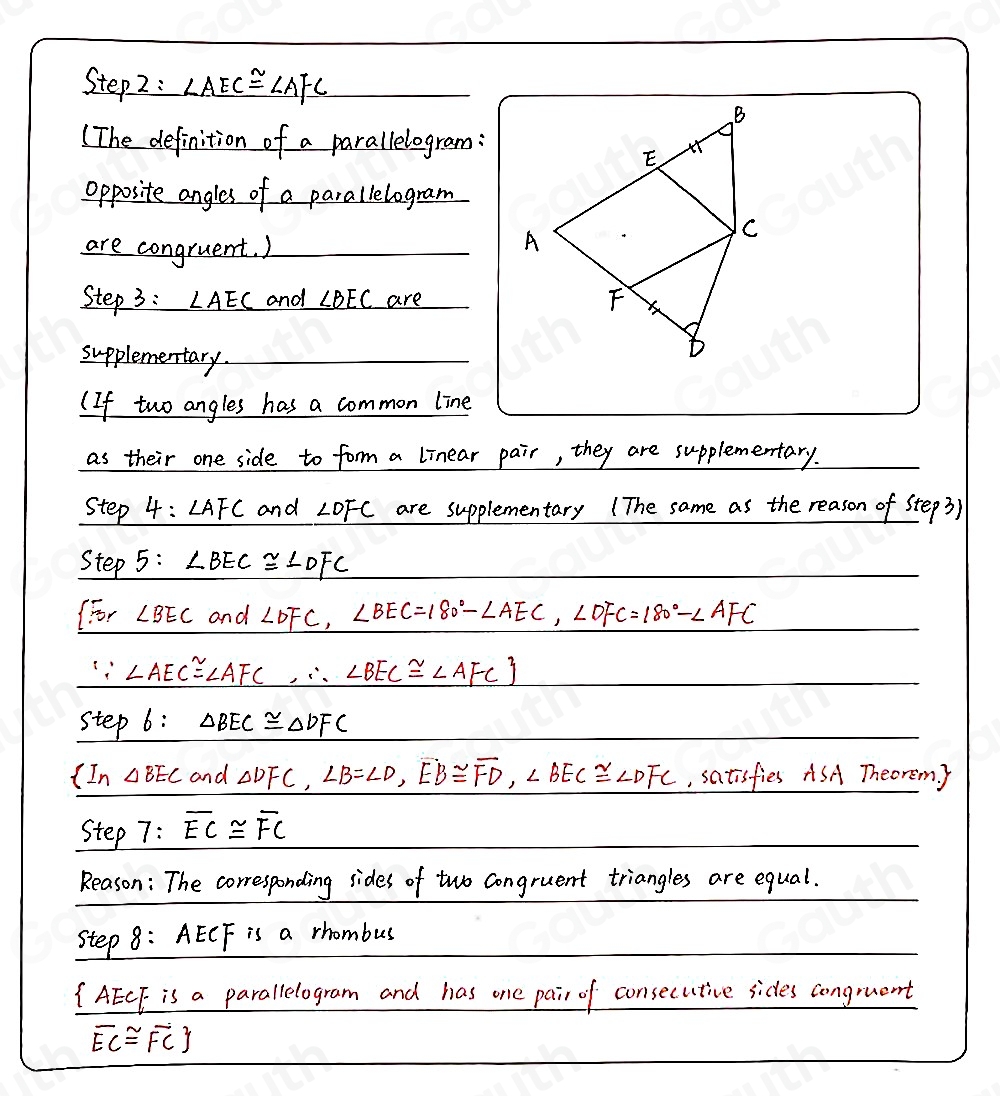 Step 2: ∠AEC≅∠AFC
(The definition of a parallelogram:
Opposite angles of a parallelogram
are congruent.)
Step 3: ∠AEC and ∠BEC are
supplementary.
(If two angles has a common line
as their one side to form a linear pair, they are supplementary.
Step 4: ∠AFC and ∠DFC are supplementary (The same as the reason of Step 3)
Step 5: ∠BEC ≅ ∠DFC
{For ∠BEC and ∠DFC, ∠BEC=180°-∠AEC, ∠DFC=180°-∠AFC
∵ ∠AEC≅∠AFC, ∴ ∠BEC ≅ ∠AFC}
Step 6: △BEC ≅ △DFC
{In △BEC and △DFC, ∠B=∠D, E̅B̅≅F̅D̅, ∠BEC≅∠DFC, satisfies ASA Theorem.}
Step 7: E̅C̅ ≅ F̅C̅
Reason: The corresponding sides of two congruent triangles are equal.
Step 8: AECF is a rhombus
{AECF is a parallelogram and has one pair of consecutive sides congruent
E̅C̅≅F̅C̅}
B
E
A
C
F
D
Gauth